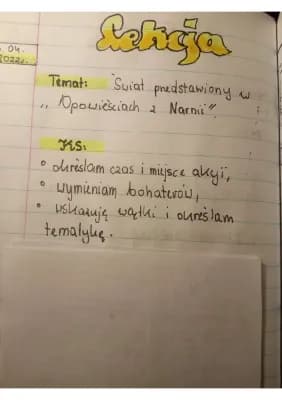 Lekcja
.04.
2022r.
Temat: "Świat przedstawiony w
,, Opowieściach z Narnii".
KS:
° określam czas i miejsce akcji,
° wymieniam bohaterów,
° wskazuję wątki i określam
tematykę.